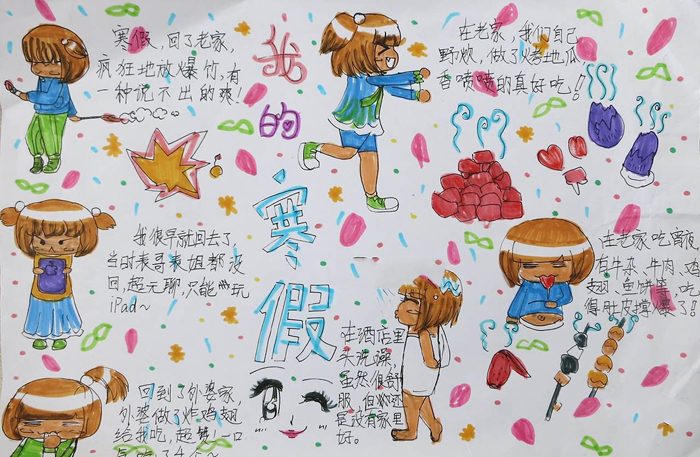 我的
寒假
寒假，回了老家，
疯狂地放爆竹，有
一种说不出的爽！
在老家，我们自己
野炊，做了烤地瓜，
香喷喷的真好吃！
我很早就回去了，
当时表哥表姐都没
回，超无聊，只能玩
iPad~
在老家吃宵夜，
有牛杂、牛肉、鸡
翅、鱼饼等，吃
得肚皮撑爆了！
在酒店里
头洗澡，
虽然很舒
服，但
是没有家里
好。
回到了外婆家，
外婆做了炸鸡翅
给我吃，超赞！一口
气吃了4个~